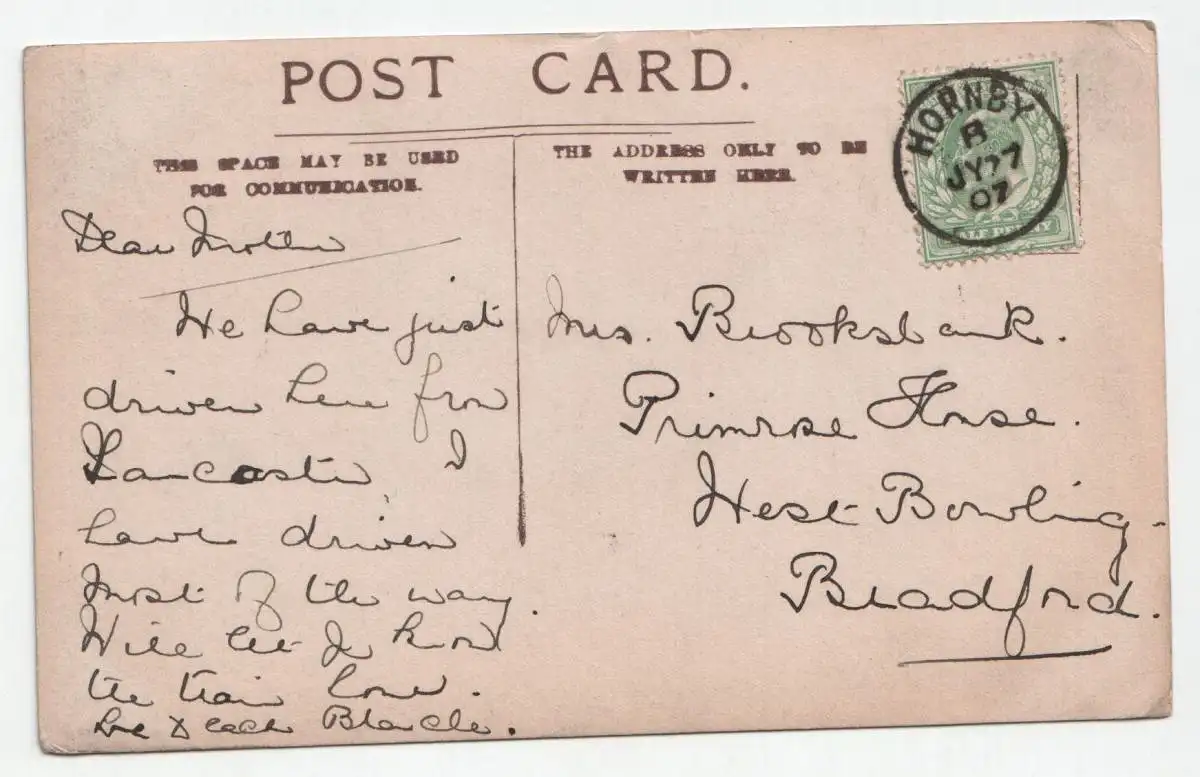 POST CARD.
THIS SPACE MAY BE USED
FOR COMMUNICATION.
THE ADDRESS ONLY TO BE
WRITTEN HERE.
HORNBY
JY 27
07
HALF PENNY
Dear Mother
We have just
driven here from
Lancaster, I
have driven
most of the way.
Will let you know
the train home.
Love to each Blanche.
Mrs. Brooksbank.
Primrose House.
West Bowling.
Bradford.